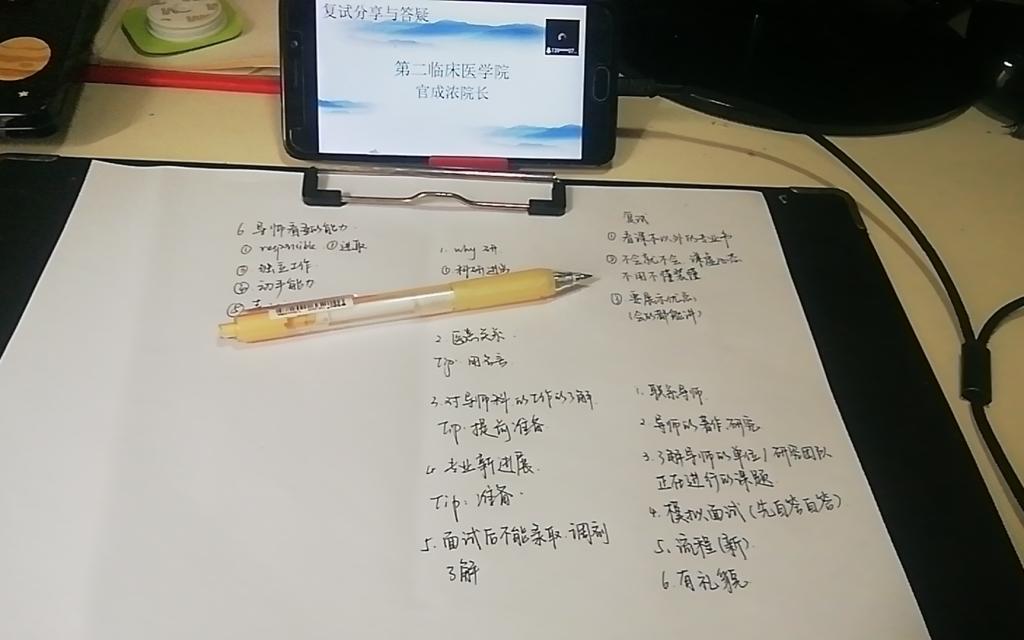 复试分享与答疑
第二临床医学院
官成浓院长
6. 导师看重的能力
① responsible ②进取
③ 独立工作
④ 动手能力
⑤
1. why 研
① 科研进
2. 医患关系.
Tip: 用名言
3. 对导师科的工作的了解.
Tip: 提前准备.
4. 专业新进展.
Tip: 准备.
5. 面试后不能录取.调剂
了解
复试
① 看课本以外的专业书
② 不会就不会
不用不懂装懂
③ 要展示优点
(会的都能讲)
1. 联系导师.
2. 导师的著作.研究
3. 了解导师的单位/研究团队
正在进行的课题.
4. 模拟面试(先自答自答)
5. 流程(新).
6. 有礼貌.